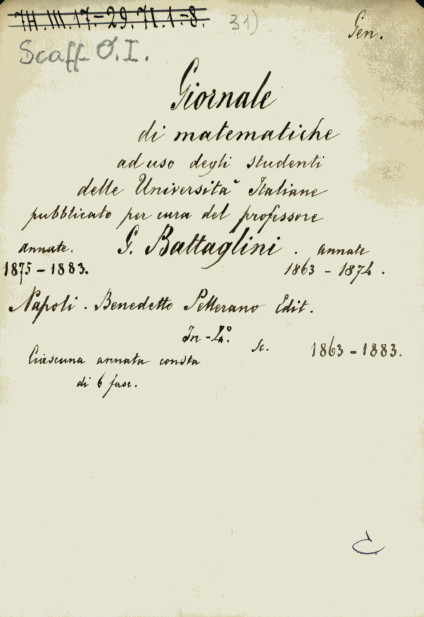 7H.III.17.=29.71.1=8. 31) Gen.
Scaff O.I.
Giornale
di matematiche
ad uso degli studenti
delle Università Italiane
pubblicato per cura del professore
annate. G. Battaglini . annate
1875-1883. 1863-1874.
Napoli. Benedetto Pellerano Edit.
In-4.º
Ciascuna annata consta Sc. 1863-1883.
di 6 fasc.